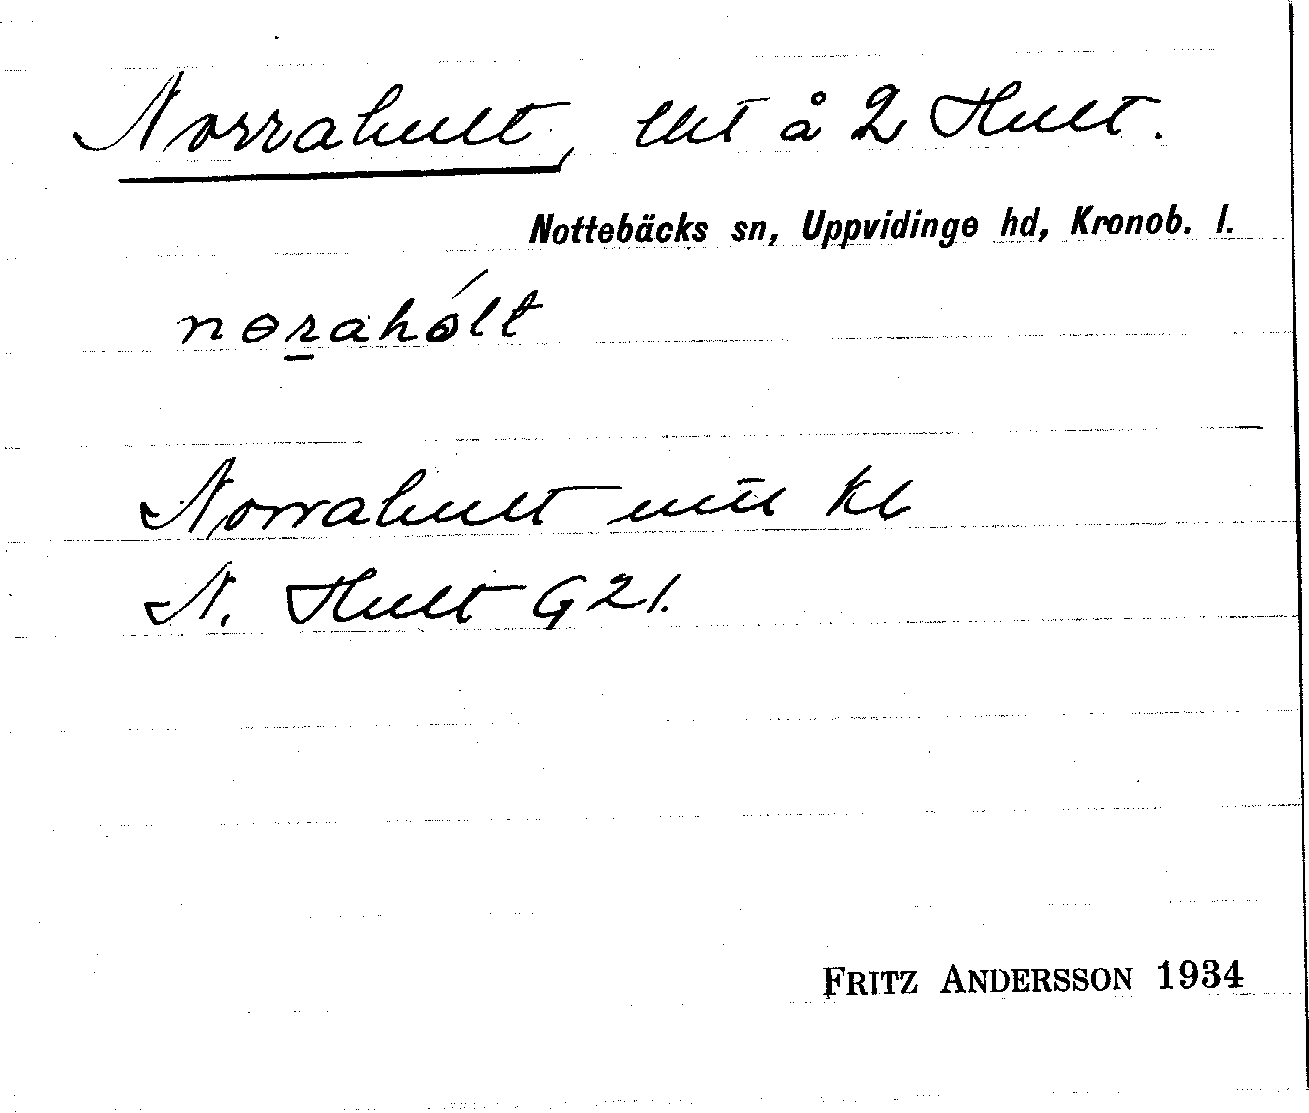 Norrahult, lht å 2 Hult.
Nottebäcks sn, Uppvidinge hd, Kronob. l.
nɵrahólt
Norrahult utit kb
N. Hult G21.
FRITZ ANDERSSON 1934